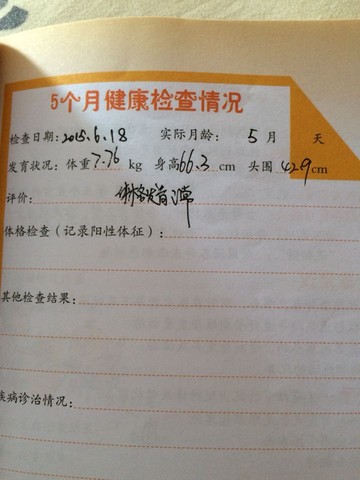 5个月健康检查情况
检查日期: 2015.6.18 实际月龄: 5 月 天
发育状况: 体重 7.76 kg 身高 66.3 cm 头围 42.9 cm
评价: 体格发育正常
体格检查(记录阳性体征):
其他检查结果:
疾病诊治情况: